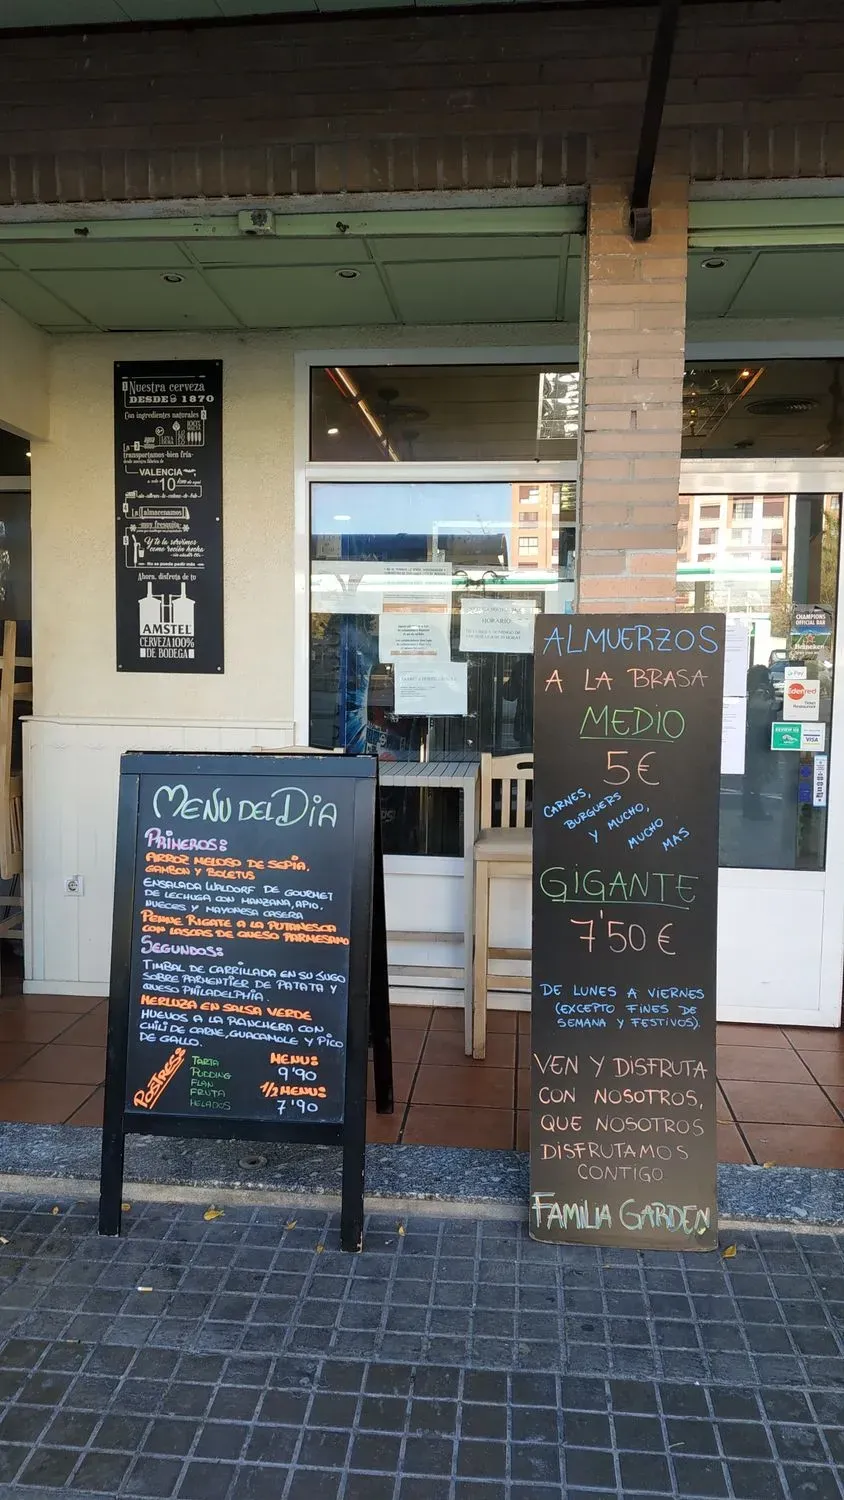 Nuestra cerveza
DESDE 1870
Con ingredientes naturales
agua
transportamos bien fría
VALENCIA
10
almacenamos
muy fresquita
Y te la servimos
como recién hecha
No se puede pedir más
Ahora, disfruta de tu
AMSTEL
CERVEZA 100%
DE BODEGA
HORARIO
CHAMPIONS
OFFICIAL BAR
Heineken
Pay
Edenred
Ticket
Restaurant
VISA
MENU DEL DIA
PRIMEROS:
ARROZ MELOSO DE SEPIA,
GAMBON Y BOLETUS
ENSALADA WALDORF DE GOURMET
DE LECHUGA CON MANZANA, APIO,
NUECES Y MAYONESA CASERA
PENNE RIGATE A LA PUTANESCA
CON LASCAS DE QUESO PARMESANO
SEGUNDOS:
TIMBAL DE CARRILLADA EN SU JUGO
SOBRE PARMENTIER DE PATATA Y
QUESO PHILADELPHIA.
MERLUZA EN SALSA VERDE
HUEVOS A LA RANCHERA CON
CHILI DE CARNE, GUACAMOLE Y PICO
DE GALLO.
POSTRES:
TARTA
PUDDING
FLAN
FRUTA
HELADOS
MENU:
9'90
1/2 MENU:
7'90
ALMUERZOS
A LA BRASA
MEDIO
5€
CARNES,
BURGUERS
Y MUCHO,
MUCHO
MAS
GIGANTE
7'50€
DE LUNES A VIERNES
(EXCEPTO FINES DE
SEMANA Y FESTIVOS).
VEN Y DISFRUTA
CON NOSOTROS,
QUE NOSOTROS
DISFRUTAMOS
CONTIGO
FAMILIA GARDEN